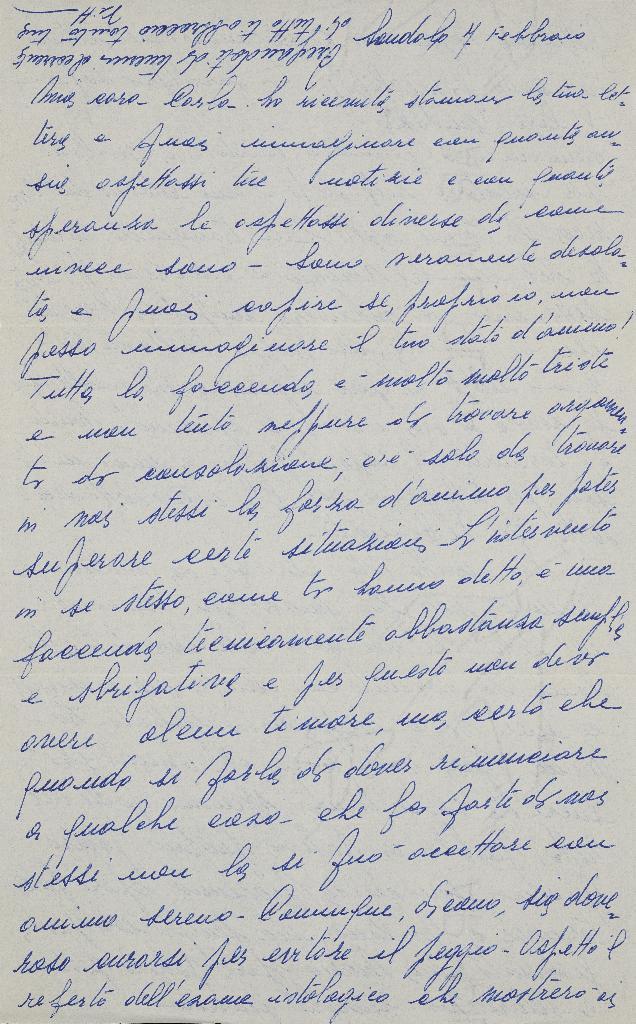 Sondalo 7 Febbraio
Mia cara Carla ho ricevuto stamane la tua let-
tera e puoi immaginare con quanta an-
sia aspettassi tue notizie e con quanta
speranza le aspettassi diverse da come
invece sono - Sono veramente desola-
ta e puoi capire se, proprio io, non
posso immaginare il tuo stato d'animo!
Tutta la faccenda è molto molto triste
e non tento neppure di trovare argomen-
ti di consolazione, c'è solo da trovare
in noi stessi la forza d'animo per poter
superare certe situazioni - L'intervento
in se stesso, come ti hanno detto, è una
faccenda tecnicamente abbastanza semplice
e sbrigativa e per questo non devi
avere alcun timore, ma certo che
quando si parla di dover rinunciare
a qualche cosa - che fa parte di noi
stessi non la si può accettare con
animo sereno - Comunque, dicano, sia dove-
roso curarsi per evitare il peggio - Aspetto il
referto dell'esame istologico che mostrerò ai
di tutto ti abbraccio tanto tua